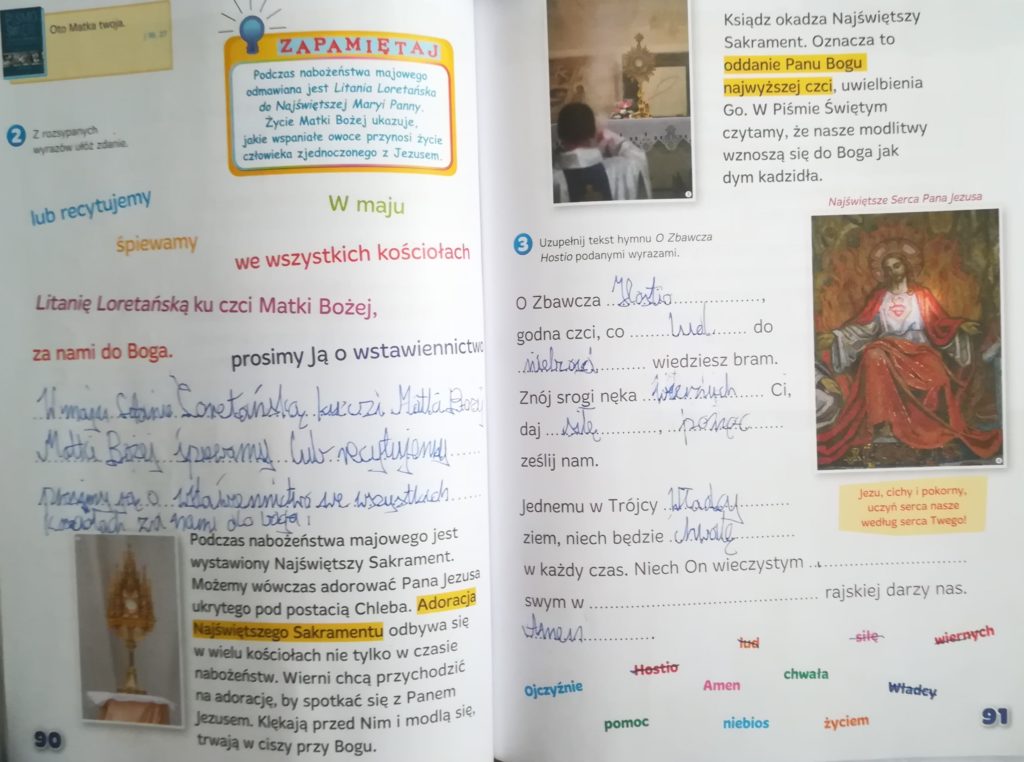 Oto Matka twoja.
J 19, 27
ZAPAMIĘTAJ
Podczas nabożeństwa majowego
odmawiana jest Litania Loretańska
do Najświętszej Maryi Panny.
Życie Matki Bożej ukazuje,
jakie wspaniałe owoce przynosi życie
człowieka zjednoczonego z Jezusem.
2 Z rozsypanych
wyrazów ułóż zdanie.
lub recytujemy
W maju
śpiewamy
we wszystkich kościołach
Litanię Loretańską ku czci Matki Bożej,
za nami do Boga.
prosimy Ją o wstawiennictwo
W maju Litanię Loretańską ku czi Matki Bożej
Matki Bożej śpiewamy lub recytujemy
prosimy o wstawiennictwo we wszystkich
za nami do boga
Podczas nabożeństwa majowego jest
wystawiony Najświętszy Sakrament.
Możemy wówczas adorować Pana Jezusa
ukrytego pod postacią Chleba. Adoracja
Najświętszego Sakramentu odbywa się
w wielu kościołach nie tylko w czasie
nabożeństw. Wierni chcą przychodzić
na adorację, by spotkać się z Panem
Jezusem. Klękają przed Nim i modlą się,
trwają w ciszy przy Bogu.
90
Ksiądz okadza Najświętszy
Sakrament. Oznacza to
oddanie Panu Bogu
najwyższej czci, uwielbienia
Go. W Piśmie Świętym
czytamy, że nasze modlitwy
wznoszą się do Boga jak
dym kadzidła.
Najświętsze Serca Pana Jezusa
3 Uzupełnij tekst hymnu O Zbawcza
Hostio podanymi wyrazami.
O Zbawcza Hostio,
godna czci, co lud do
niebios wiedziesz bram.
Znój srogi nęka wiernych Ci,
daj siłę, pomoc
ześlij nam.
Jednemu w Trójcy Władcy
ziem, niech będzie chwałę
w każdy czas. Niech On wieczystym
swym w rajskiej darzy nas.
Amen
Jezu, cichy i pokorny,
uczyń serca nasze
według serca Twego!
lud
siłę
wiernych
Hostio
chwała
Ojczyźnie
Amen
Władcy
pomoc
niebios
życiem
91